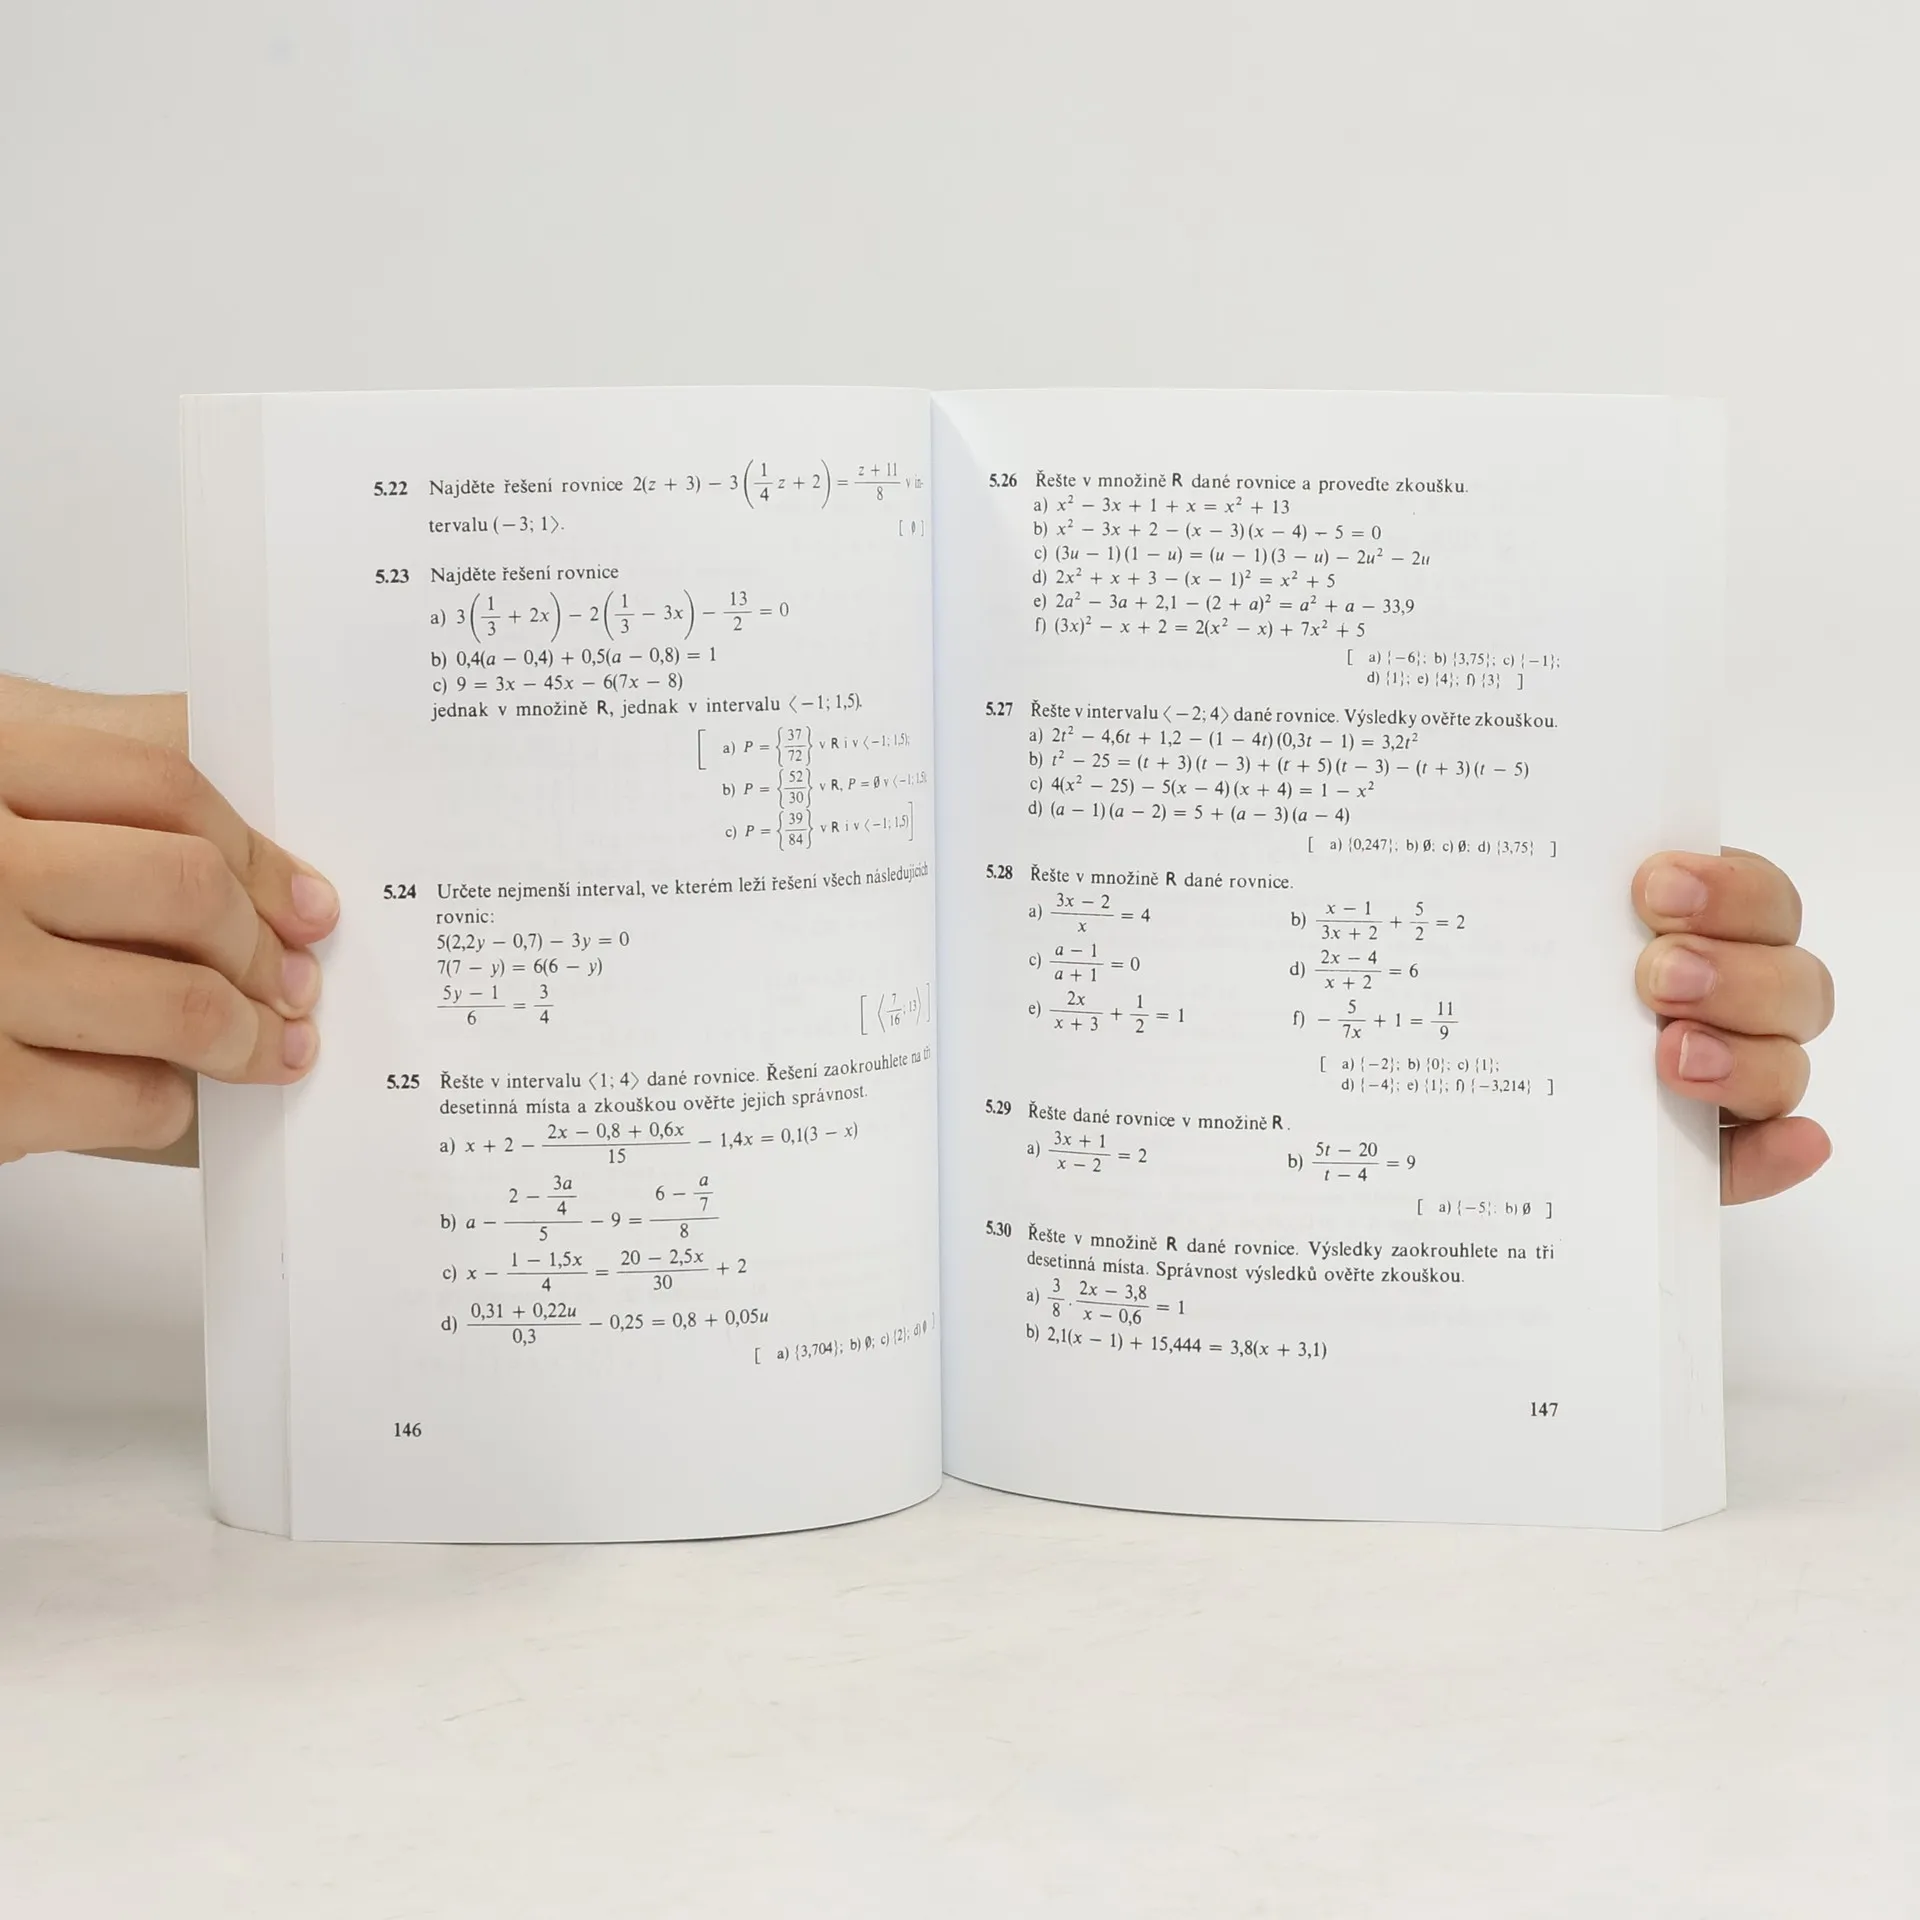 5.22 Najděte řešení rovnice 2(z + 3) − 3(1/4 z + 2) = (z + 11)/8 v in-
tervalu (−3; 1⟩.
[ ∅ ]
5.23 Najděte řešení rovnice
a) 3(1/3 + 2x) − 2(1/3 − 3x) − 13/2 = 0
b) 0,4(a − 0,4) + 0,5(a − 0,8) = 1
c) 9 = 3x − 45x − 6(7x − 8)
jednak v množině R, jednak v intervalu ⟨−1; 1,5).
[ a) P = {37/72} v R i v ⟨−1; 1,5);
b) P = {52/30} v R, P = ∅ v ⟨−1; 1,5);
c) P = {39/84} v R i v ⟨−1; 1,5) ]
5.24 Určete nejmenší interval, ve kterém leží řešení všech následujících
rovnic:
5(2,2y − 0,7) − 3y = 0
7(7 − y) = 6(6 − y)
(5y − 1)/6 = 3/4
[ ⟨7/16; 13⟩ ]
5.25 Řešte v intervalu ⟨1; 4⟩ dané rovnice. Řešení zaokrouhlete na tři
desetinná místa a zkouškou ověřte jejich správnost.
a) x + 2 − (2x − 0,8 + 0,6x)/15 − 1,4x = 0,1(3 − x)
b) a − (2 − 3a/4)/5 − 9 = (6 − a/7)/8
c) x − (1 − 1,5x)/4 = (20 − 2,5x)/30 + 2
d) (0,31 + 0,22u)/0,3 − 0,25 = 0,8 + 0,05u
[ a) {3,704}; b) ∅; c) {2}; d) ∅ ]
146
5.26 Řešte v množině R dané rovnice a proveďte zkoušku.
a) x² − 3x + 1 + x = x² + 13
b) x² − 3x + 2 − (x − 3)(x − 4) − 5 = 0
c) (3u − 1)(1 − u) = (u − 1)(3 − u) − 2u² − 2u
d) 2x² + x + 3 − (x − 1)² = x² + 5
e) 2a² − 3a + 2,1 − (2 + a)² = a² + a − 33,9
f) (3x)² − x + 2 = 2(x² − x) + 7x² + 5
[ a) {−6}; b) {3,75}; c) {−1};
d) {1}; e) {4}; f) {3} ]
5.27 Řešte v intervalu ⟨−2; 4⟩ dané rovnice. Výsledky ověřte zkouškou.
a) 2t² − 4,6t + 1,2 − (1 − 4t)(0,3t − 1) = 3,2t²
b) t² − 25 = (t + 3)(t − 3) + (t + 5)(t − 3) − (t + 3)(t − 5)
c) 4(x² − 25) − 5(x − 4)(x + 4) = 1 − x²
d) (a − 1)(a − 2) = 5 + (a − 3)(a − 4)
[ a) {0,247}; b) ∅; c) ∅; d) {3,75} ]
5.28 Řešte v množině R dané rovnice.
a) (3x − 2)/x = 4 b) (x − 1)/(3x + 2) + 5/2 = 2
c) (a − 1)/(a + 1) = 0 d) (2x − 4)/(x + 2) = 6
e) 2x/(x + 3) + 1/2 = 1 f) − 5/7x + 1 = 11/9
[ a) {−2}; b) {0}; c) {1};
d) {−4}; e) {1}; f) {−3,214} ]
5.29 Řešte dané rovnice v množině R.
a) (3x + 1)/(x − 2) = 2 b) (5t − 20)/(t − 4) = 9
[ a) {−5}; b) ∅ ]
5.30 Řešte v množině R dané rovnice. Výsledky zaokrouhlete na tři
desetinná místa. Správnost výsledků ověřte zkouškou.
a) 3/8 . (2x − 3,8)/(x − 0,6) = 1
b) 2,1(x − 1) + 15,444 = 3,8(x + 3,1)
147